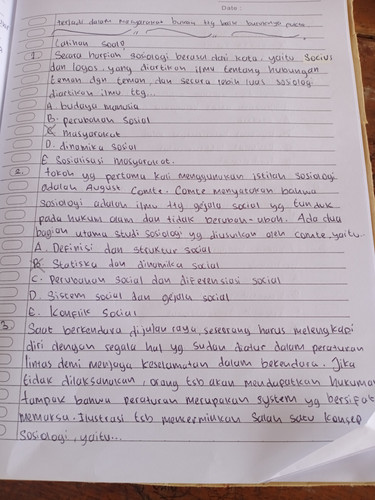 Date :
terjadi dalam masyarakat bumi ttg baik buruknya
Latihan soal?
1. Secara harfiah sosiologi berasal dari kata, yaitu Socius
dan logos, yang diartikan ilmu tentang hubungan
teman dgn teman, dan secara lebih luas sosiologi
diartikan ilmu ttg...
A. budaya manusia
B. perubahan sosial
C. masyarakat
D. dinamika sosial
E. Sosialisasi masyarakat.
2. Tokoh yg pertama kali menggunakan istilah sosiologi
adalah August Comte. Comte menyatakan bahwa
sosiologi adalah ilmu ttg gejala social yg tunduk
pada hukum alam dan tidak berubah-ubah. Ada dua
bagian utama studi sosiologi yg diusulkan oleh comte, yaitu
A. Definisi dan struktur social
B. Statiska dan dinamika social
C. Perubahan social dan diferensiasi social
D. Sistem social dan gejala social
E. Konflik Social
3. Saat berkendara di jalan raya, seseorang harus melengkapi
diri dengan segala hal yg sudah diatur dalam peraturan
lintas demi menjaga keselamatan dalam berkendara. Jika
tidak dilaksanakan, orang tsb akan mendapatkan hukuman
tampak bahwa peraturan merupakan system yg bersifat
memaksa. Ilustrasi tsb mencerminkan salah satu konsep
sosiologi, yaitu...